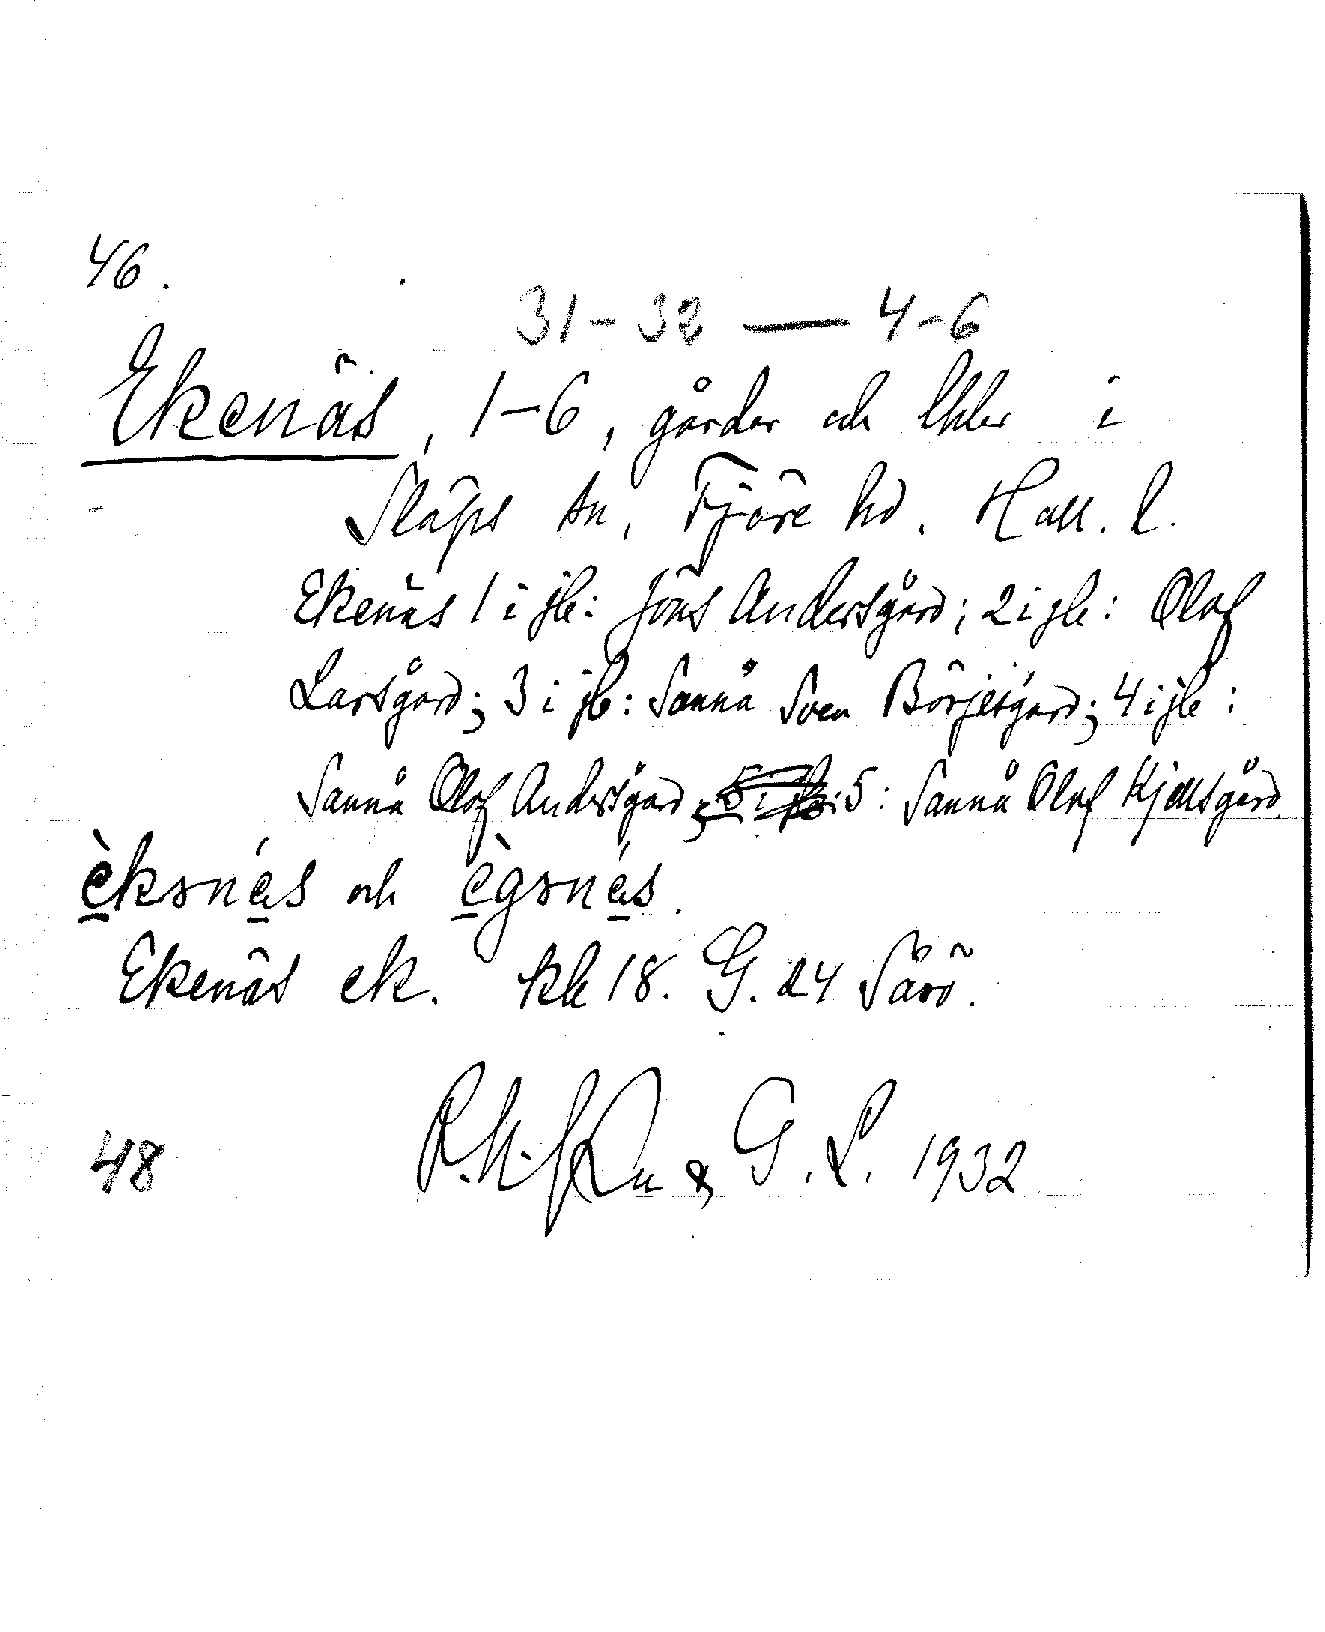 46.
31-32 — 4-6
Ekenäs, 1-6, gårdar och lhbr i
Släps sn, Fjäre hd. Hall. l.
Ekenäs 1 i jb: Jöns Andersgård; 2 i jb: Olof
Larsgård; 3 i jb: Sannå Sven Börjesgård; 4 i jb:
Sannå Olof Andersgård; 5: Sannå Olof Kjellsgård.
èkənás och ègənás.
Ekenäs ek. kbl 18. G. 24 Särö.
& G. L. 1932
48